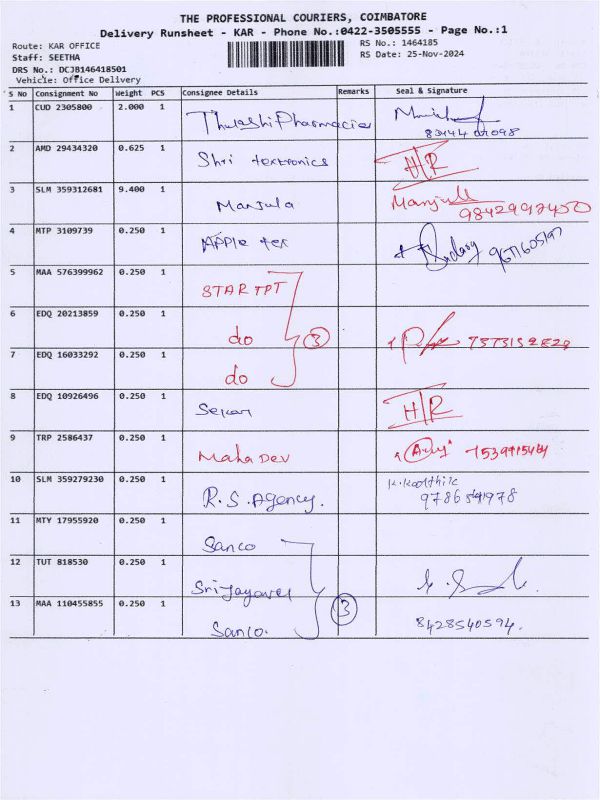 THE PROFESSIONAL COURIERS, COIMBATORE
Delivery Runsheet - KAR - Phone No.:0422-3505555 - Page No.:1
Route: KAR OFFICE RS No.: 1464185
Staff: SEETHA RS Date: 25-Nov-2024
DRS No.: DCJB146418501
Vehicle: Office Delivery
S No Consignment No Weight PCS Consignee Details Remarks Seal & Signature
1 CUD 2305800 2.000 1 Thulashi Pharmacies
2 AMD 29434320 0.625 1 Shri textronics H/R
3 SLM 359312681 9.400 1 Manjula Manjull
9842997450
4 MTP 3109739 0.250 1 APPle tex 9671605197
5 MAA 576399962 0.250 1 STAR TPT
6 EDQ 20213859 0.250 1 do 3
7 EDQ 16033292 0.250 1 do
8 EDQ 10926496 0.250 1 Sekar H/R
9 TRP 2586437 0.250 1 Maha Dev
10 SLM 359279230 0.250 1 R.S. Agency. K.Karthik
11 MTY 17955920 0.250 1 Sanco
12 TUT 818530 0.250 1 Sri Jayavel
13 MAA 110455855 0.250 1 Sanco. 3 8428540594.